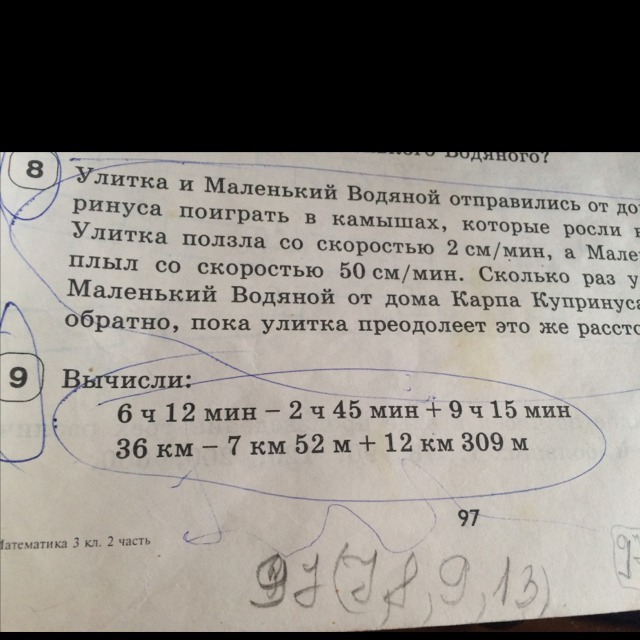 Водяного?
8
Улитка и Маленький Водяной отправились от
ринуса поиграть в камышах, которые росли
Улитка ползла со скоростью 2 см/мин, а
плыл со скоростью 50 см/мин. Сколько раз
Маленький Водяной от дома Карпа Купринуса
обратно, пока улитка преодолеет это же
9 Вычисли:
6 ч 12 мин − 2 ч 45 мин + 9 ч 15 мин
36 км − 7 км 52 м + 12 км 309 м
97
Математика 3 кл. 2 часть
(7, 8, 9, 13)